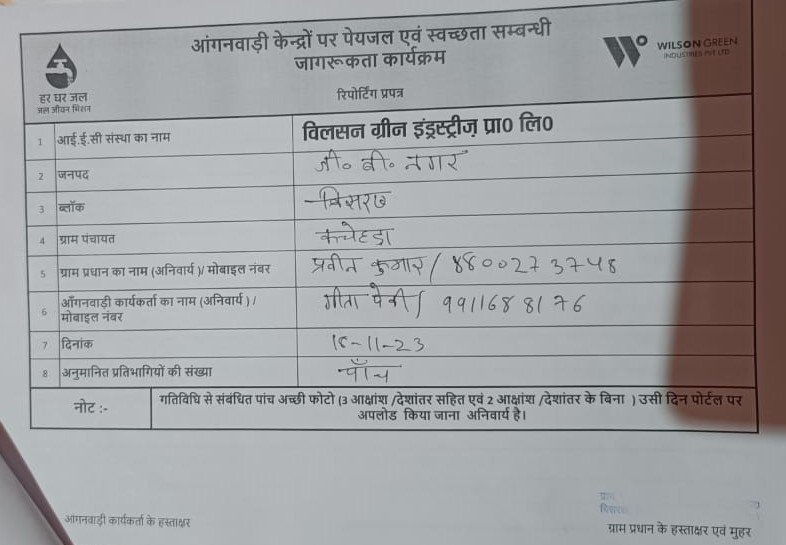 आंगनवाड़ी केन्द्रों पर पेयजल एवं स्वच्छता सम्बन्धी
जागरूकता कार्यक्रम
हर घर जल
जल जीवन मिशन
WILSON GREEN
INDUSTRIES PVT LTD
रिपोर्टिंग प्रपत्र
1 आई.ई.सी संस्था का नाम विलसन ग्रीन इंड्रस्ट्रीज़ प्रा0 लि0
2 जनपद जी० बी० नगर
3 ब्लॉक बिसरख
4 ग्राम पंचायत कचेहडा
5 ग्राम प्रधान का नाम (अनिवार्य )/ मोबाइल नंबर प्रवीन कुमार / 8800273748
6 आँगनवाड़ी कार्यकर्ता का नाम (अनिवार्य ) /
मोबाइल नंबर
गीता / 9911688176
7 दिनांक 18-11-23
8 अनुमानित प्रतिभागियों की संख्या पाँच
नोट :- गतिविधि से संबंधित पांच अच्छी फोटो (3 आक्षांश /देशांतर सहित एवं 2 आक्षांश /देशांतर के बिना ) उसी दिन पोर्टल पर
अपलोड किया जाना अनिवार्य है।
आंगनवाड़ी कार्यकर्ता के हस्ताक्षर
ग्राम प्रधान के हस्ताक्षर एवं मुहर